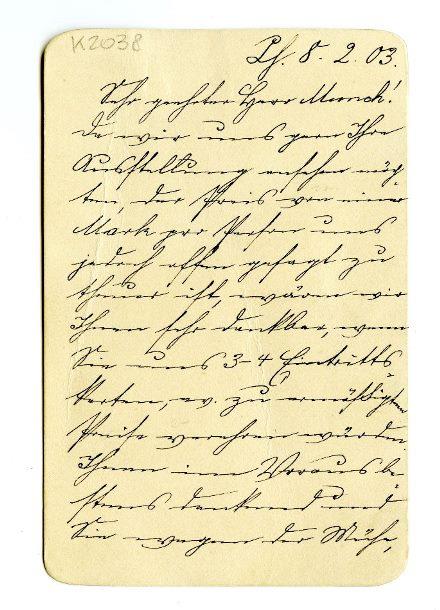 K2038
Ch. 8. 2. 03.
Sehr geehrter Herr Munch!
Da wir uns gern Ihre
Ausstellung ansehen möch-
ten, der Preis von einer
Mark pro Person uns
jedoch offen gesagt zu
theuer ist, wären wir
Ihnen sehr dankbar, wenn
Sie uns 3-4 Eintritts
karten, ev. zu ermäßigten
Preise verehren würden.
Ihnen im Voraus be-
stens dankend und
Sie wegen der Mühe,